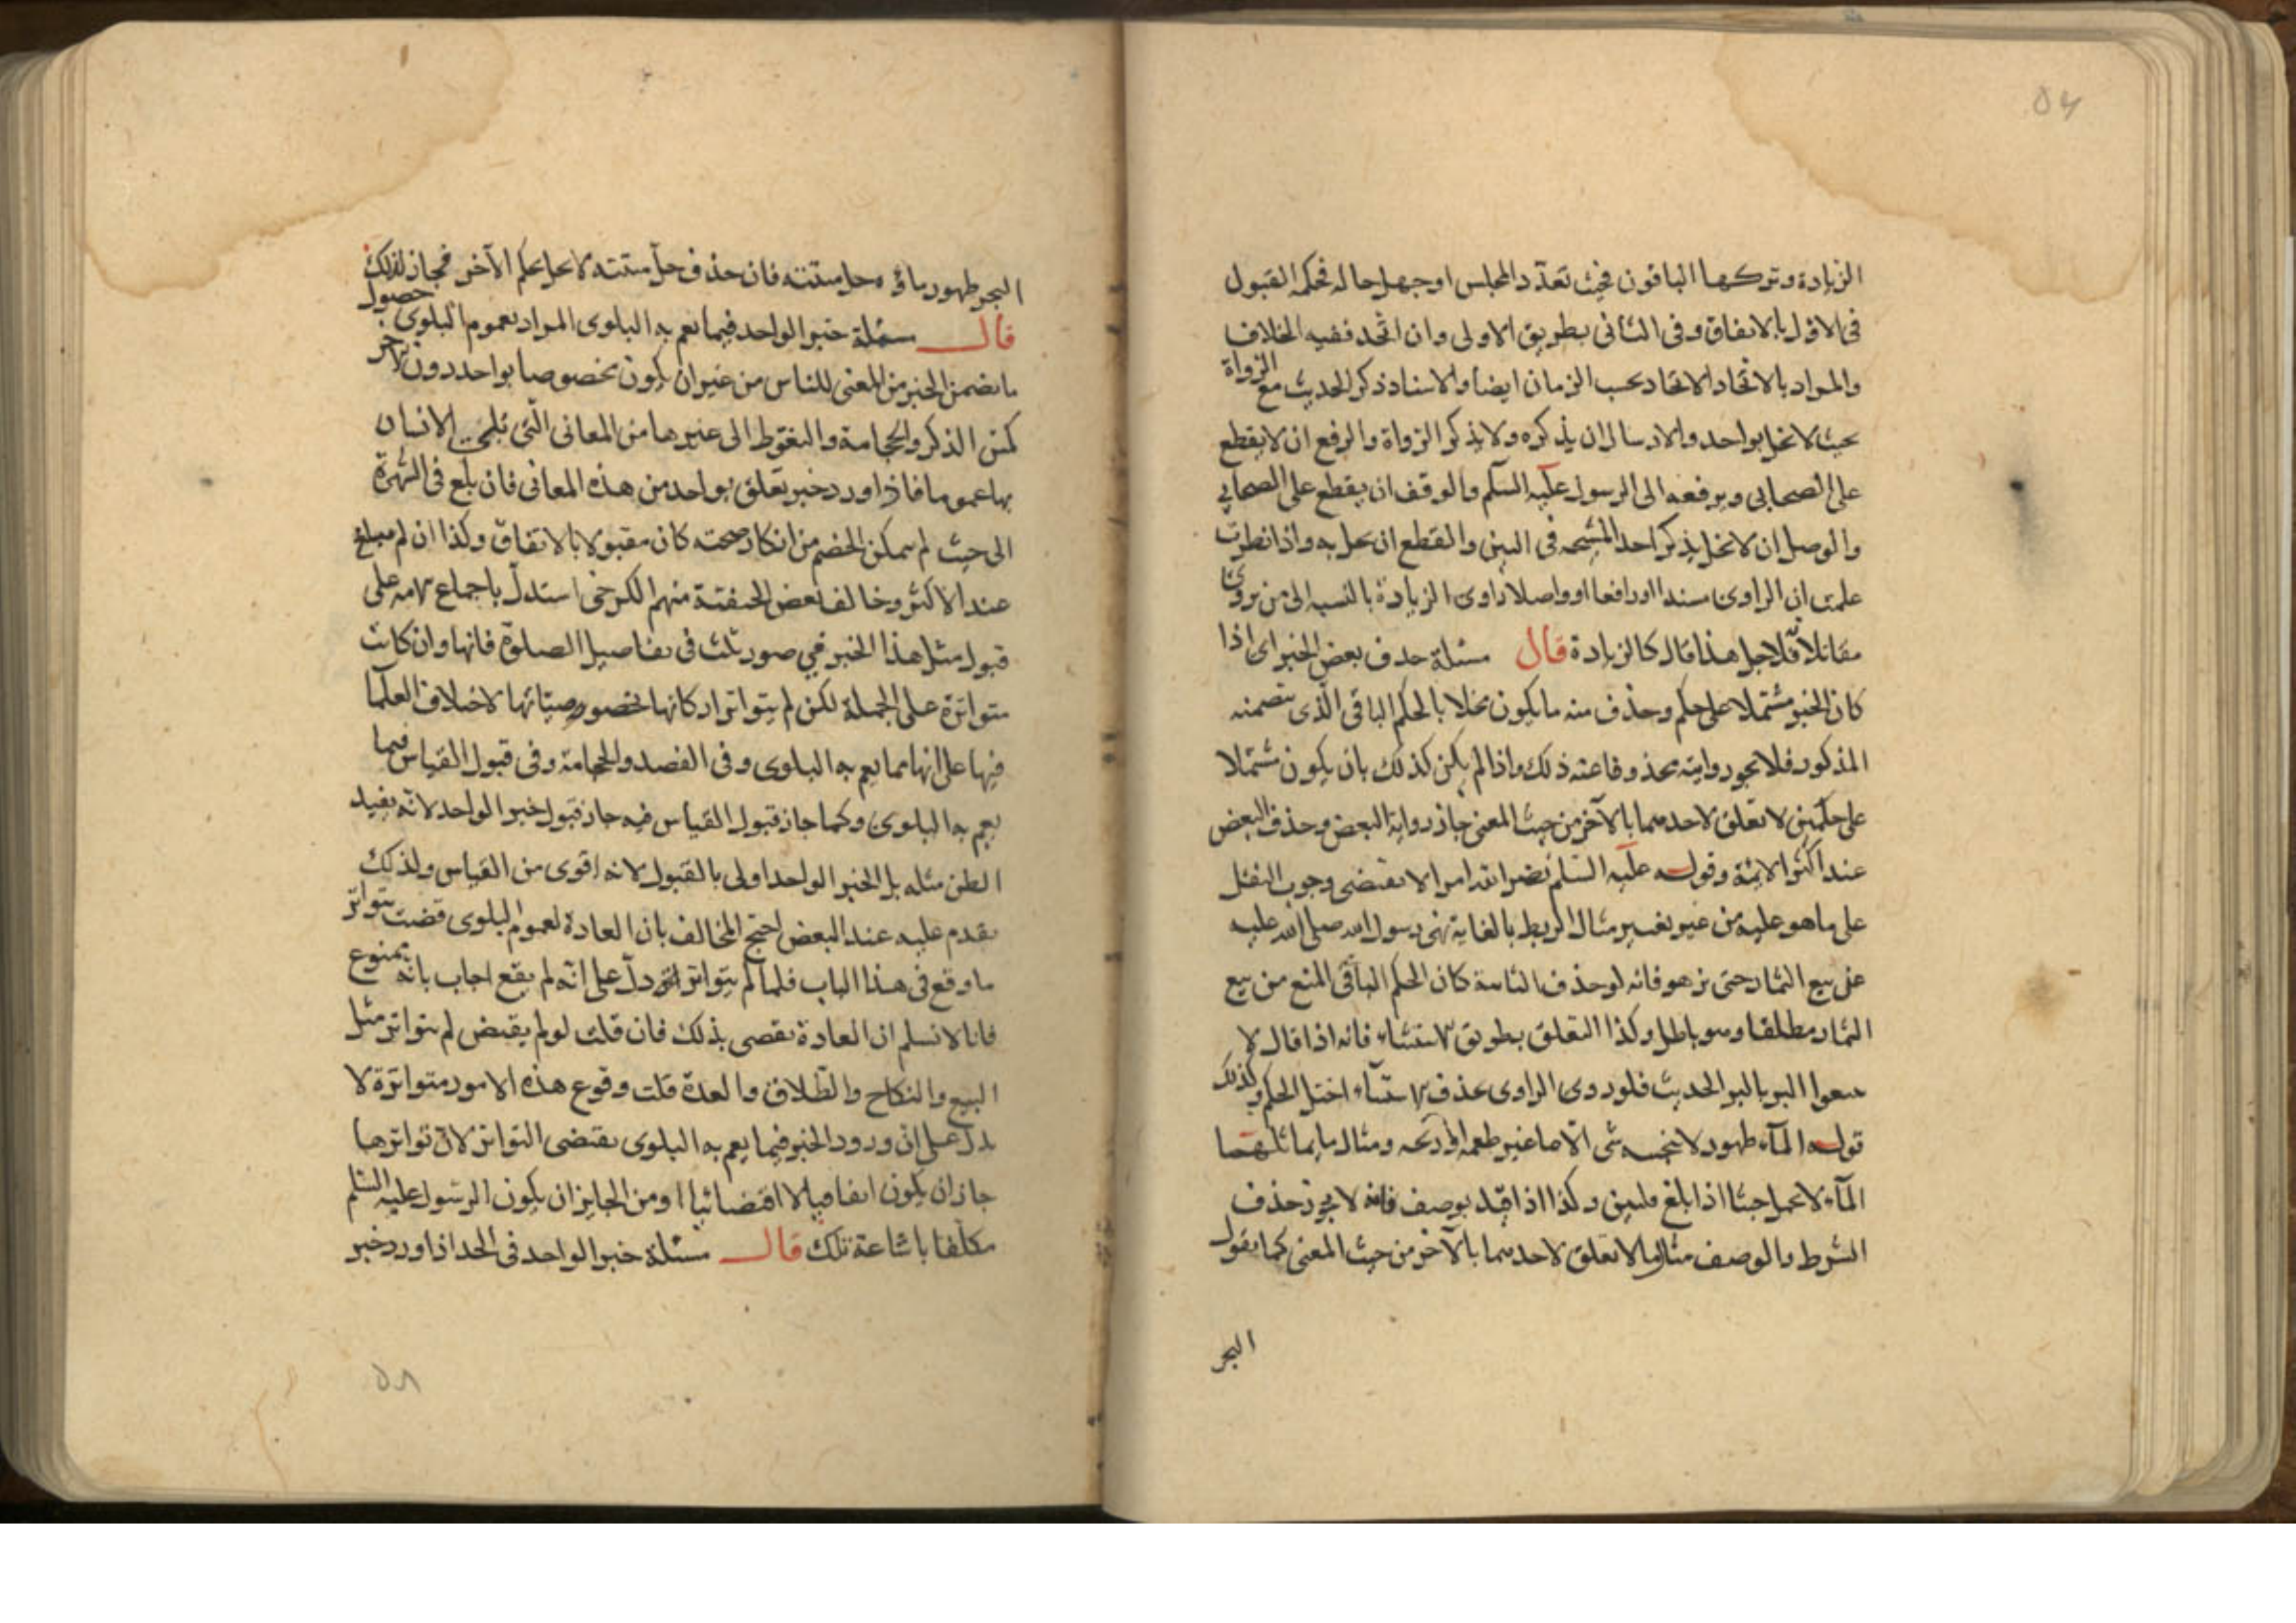 الزيادة وتركها الباقون فحيث تعدّد المجلس او جهل حاله فحكمه القبول
فى الاوّل بالاتفاق وفى الثانى بطريق الاولى وان اتحد ففيه الخلاف
والمراد بالاتحاد الاتحاد بحسب الزمان ايضا والاسناد ذكر الحديث مع الرواة
بحيث لا يخل بواحد والارسال ان يذكره ولا يذكر الرواة والرفع ان لا يقطع
على الصحابى ويرفعه الى الرسول عليه السلم والوقف ان يقطع على الصحابى
والوصل ان لا يخل بذكر احد المشيخة فى البين والقطع ان يخل به واذا نظرت
علمت ان الراوى مسندا او رافعا او واصلا راوى الزيادة بالنسبه الى من يروى
مقابلا فلاجل هذا قال كالزيادة قال مسئلة حذف بعض الخبر اى اذا
كان الخبر مشتملا على حكم وحذف منه ما يكون مخلا بالحكم الباقى الّذى تضمنه
المذكور فلا يجوز روايته محذوفا عنه ذلك واذا لم يكن كذلك بان يكون مشتملا
على حكمين لا تعلق لاحدهما بالآخر من حيث المعنى جاز رواية البعض وحذف البعض
عند اكثر الائمة وقوله عليه السلم نضر الله امرا لا يقتضى وجوب النقل
على ما هو عليه من غير تغيير مثال الربط بالغاية نهى رسول الله صلى الله عليه
عن بيع الثمار حتى تزهو فانه لو حذف الغاية كان الحكم الباقى المنع من بيع
الثمار مطلقا وهو باطل وكذا التعلق بطريق الاستثناء فانه اذا قال لا
تبيعوا البر بالبر الحديث فلو روى الراوى بحذف الاستثناء اختل الحكم وكذلك
قوله المآء طهور لا ينجسه شئ الّا ما غير طعمه او ريحه ومثال ما يماثلهما
المآء لا يحمل خبثا اذا بلغ قلتين وكذا اذا قيد بوصف فانه لا يجوز حذف
الشرط والوصف مثال ما لا تعلق لاحدهما بالآخر من حيث المعنى كما يقول
البحر
البحر طهور ماؤه وحل ميتته فان حذف حل ميتته لا يخل بحكم الآخر فجاز لذلك
قال مسئلة خبر الواحد فيما يعم به البلوى المراد بعموم البلوى حصول
ما تضمن الخبر من المعنى للناس من غير ان يكون مخصوصا بواحد دون آخر
كمس الذكر والحجامة والتغوط الى غيرها من المعانى الّتى تلحق الانسان
بها عموما فاذا ورد خبر تعلق بواحد من هذه المعانى فان بلغ فى الشهرة
الى حيث لم يمكن الخصم من انكار صحته كان مقبولا بالاتفاق وكذا ان لم يبلغ
عند الاكثر وخالف بعض الحنفية منهم الكرخى استدل باجماع الامة على
قبول مثل هذا الخبر فى صور ثلث فى تفاصيل الصلوة فانها وان كانت
متواترة على الجملة لكن لم يتواتر اركانها بخصوصياتها لاختلاف العلما
فيها على انها مما يعم به البلوى وفى الفصد والحجامة وفى قبول القياس فيما
يعم به البلوى وكما جاز قبول القياس فيه جاز قبول خبر الواحد لانه يفيد
الظن مثله بل الخبر الواحد اولى بالقبول لانه اقوى من القياس ولذلك
يقدم عليه عند البعض احتج المخالف بان العادة لعموم البلوى قضت بتواتر
ما وقع فى هذا الباب فلما لم يتواتر دلّ على انّه لم يقع اجاب بانّه ممنوع
فانا لا نسلم ان العادة تقضى بذلك فان قلت لو لم يقتض لم يتواتر مثل
البيع والنكاح والطّلاق والعدة قلت وقوع هذه الامور متواترة لا
يدل على ان ورود الخبر فيما يعم به البلوى يقتضى التواتر لان تواترها
جاز ان يكون اتفاقيا لا اقتضائيا او من الجايز ان يكون الرسول عليه السلم
مكلفا باشاعة تلك قال مسئلة خبر الواحد فى الحد اذا ورد خبر